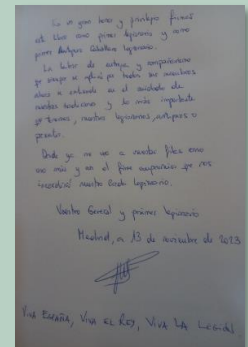 Es un gran honor y privilegio firmar
este libro como primer legionario y como
primer Antiguo Caballero legionario.
La labor de entrega y compañerismo
que siempre se aplica por todos sus miembros
ahora a enfocada en el cuidado de
nuestras tradiciones y lo más importante
que tenemos, nuestros legionarios, antiguos o
presentes.
Desde ya me uno a vuestras filas como
uno más y con el firme compromiso que nos
inculca nuestro Credo legionario.
Vuestro General y primer legionario
Madrid, a 13 de noviembre de 2023
VIVA ESPAÑA, VIVA EL REY, VIVA LA LEGIÓN!